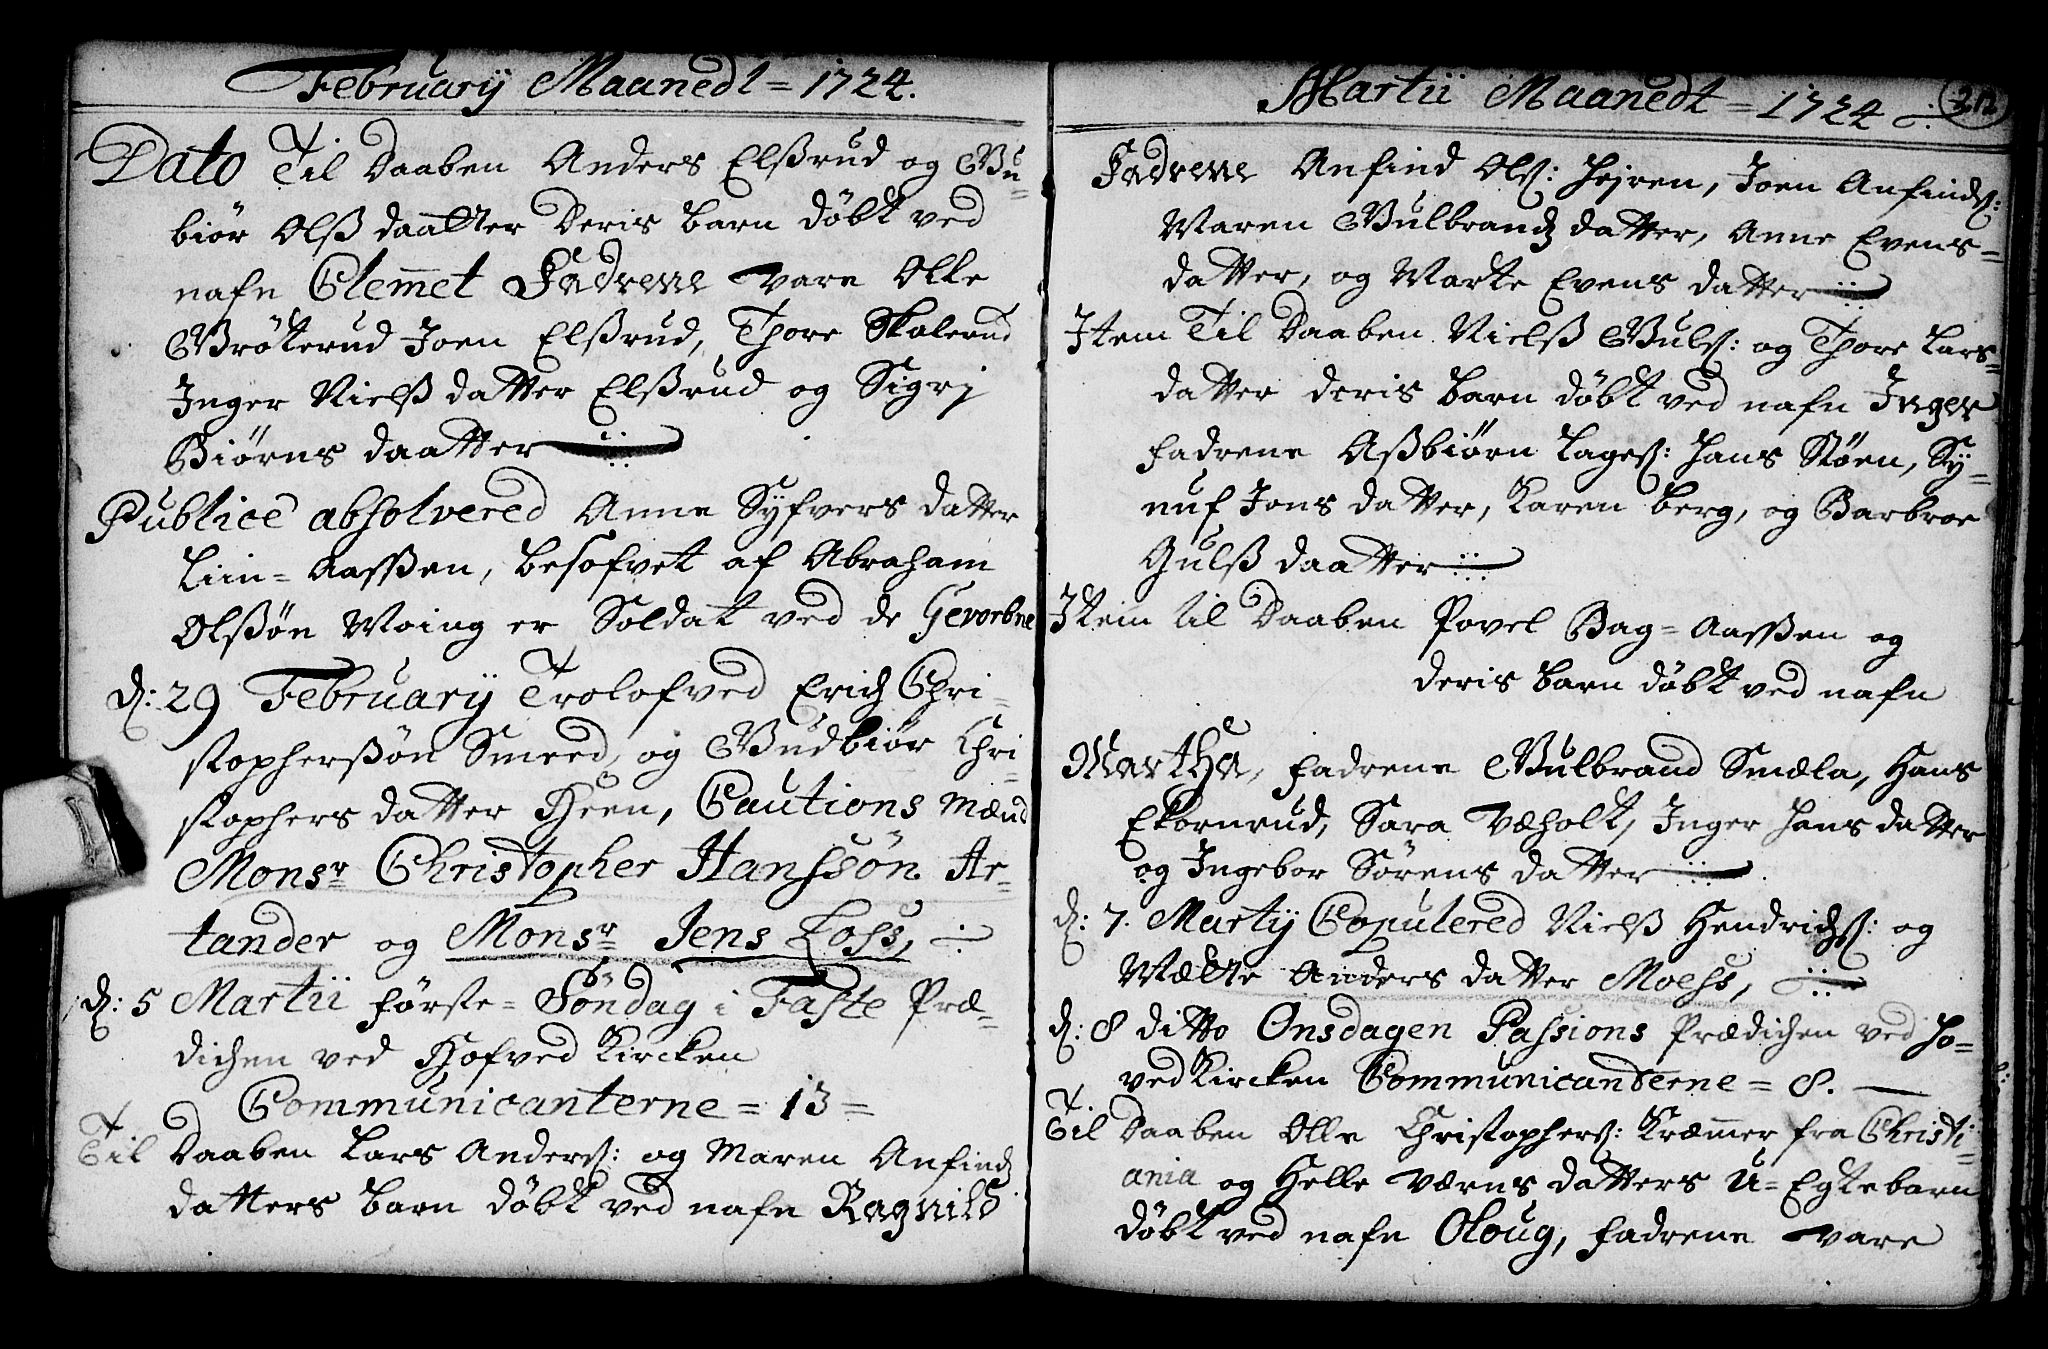 February Maanedt = 1724.
Dato Til Daaben Anders Elßrud og Gu=
biør Olß daatter Deris barn döbt ved
nafn Clem̄et Fadrene vare Olle
Bröterud Joen Elßrud, Thore Skolerud
Inger Nielß datter Elßrud og Sigrj
Biörns daatter
Publicè absolvered Anne Syfvers datter
Lim=Aasßen, besofvet af Abraham
Olßøn Moing er Soldat ved de Gevorbne
d: 29 February Trolofved Erich Chri=
stopherßøn Smeed, og Gudbiør Chri=
stophers datter Heen, Cautions mænd
Monsr Christopher Hanssøn Ar=
tander og Monsr Jens Loss,
d: 5 Martii förste=Söndag i Faste Præ=
dichen ved Hofved Kircken
Communicanterne = 13 =
Til Daaben Lars Anders: og Maren Anfinds
datters barn döbt ved nafn Ragnild
Martii Maanedt = 1724
Fadrene Anfind Ols: Hejren, Joen Anfinds:
Maren Gulbrands datter, Anne Evens=
datter, og Marte Evens datter
Item Til Daaben Nielß Guls: og Thore Lars=
datter deris barn döbt ved nafn Inger
fadrene Aßbiörn Lages: Hans Stöen, Sy=
nuf Jons datter, Karen Berg, og Barbroe
Gulß daatter
Item til Daaben Povel Bag=Aasßen og
deris barn döbt ved nafn
Martha, fadrene Gulbrand Smæla, Hans
Ekornrud, Sara Væholt, Inger Hans datter
og Ingebor Sörens datter
d: 7. Martij Copulered Nielß Hendrichs: og
Mælte Anders datter Moess,
d: 8 ditto Onsdagen Passions Prædichen ved Ho=
vedKircken Communicanterne = 8.
Til Daaben Olle Christophers: Kræm̄er fra Christi=
ania og Helle Værns datters U=Egtebarn
döbt ved nafn Oloug, fadrene vare